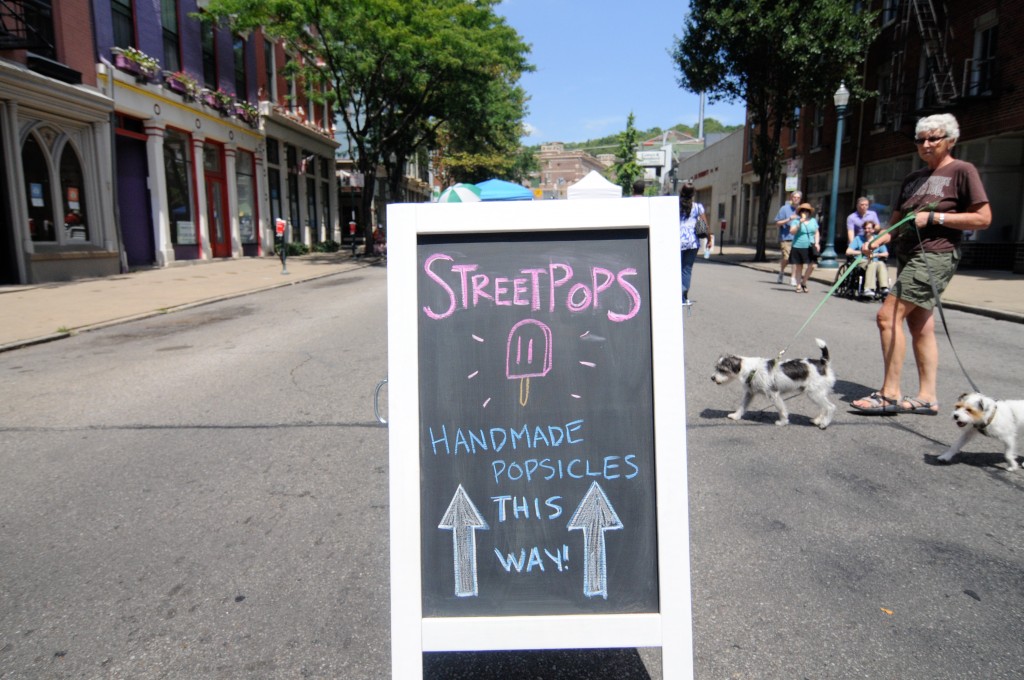 STREETPOPS
HANDMADE
POPSICLES
THIS
WAY!